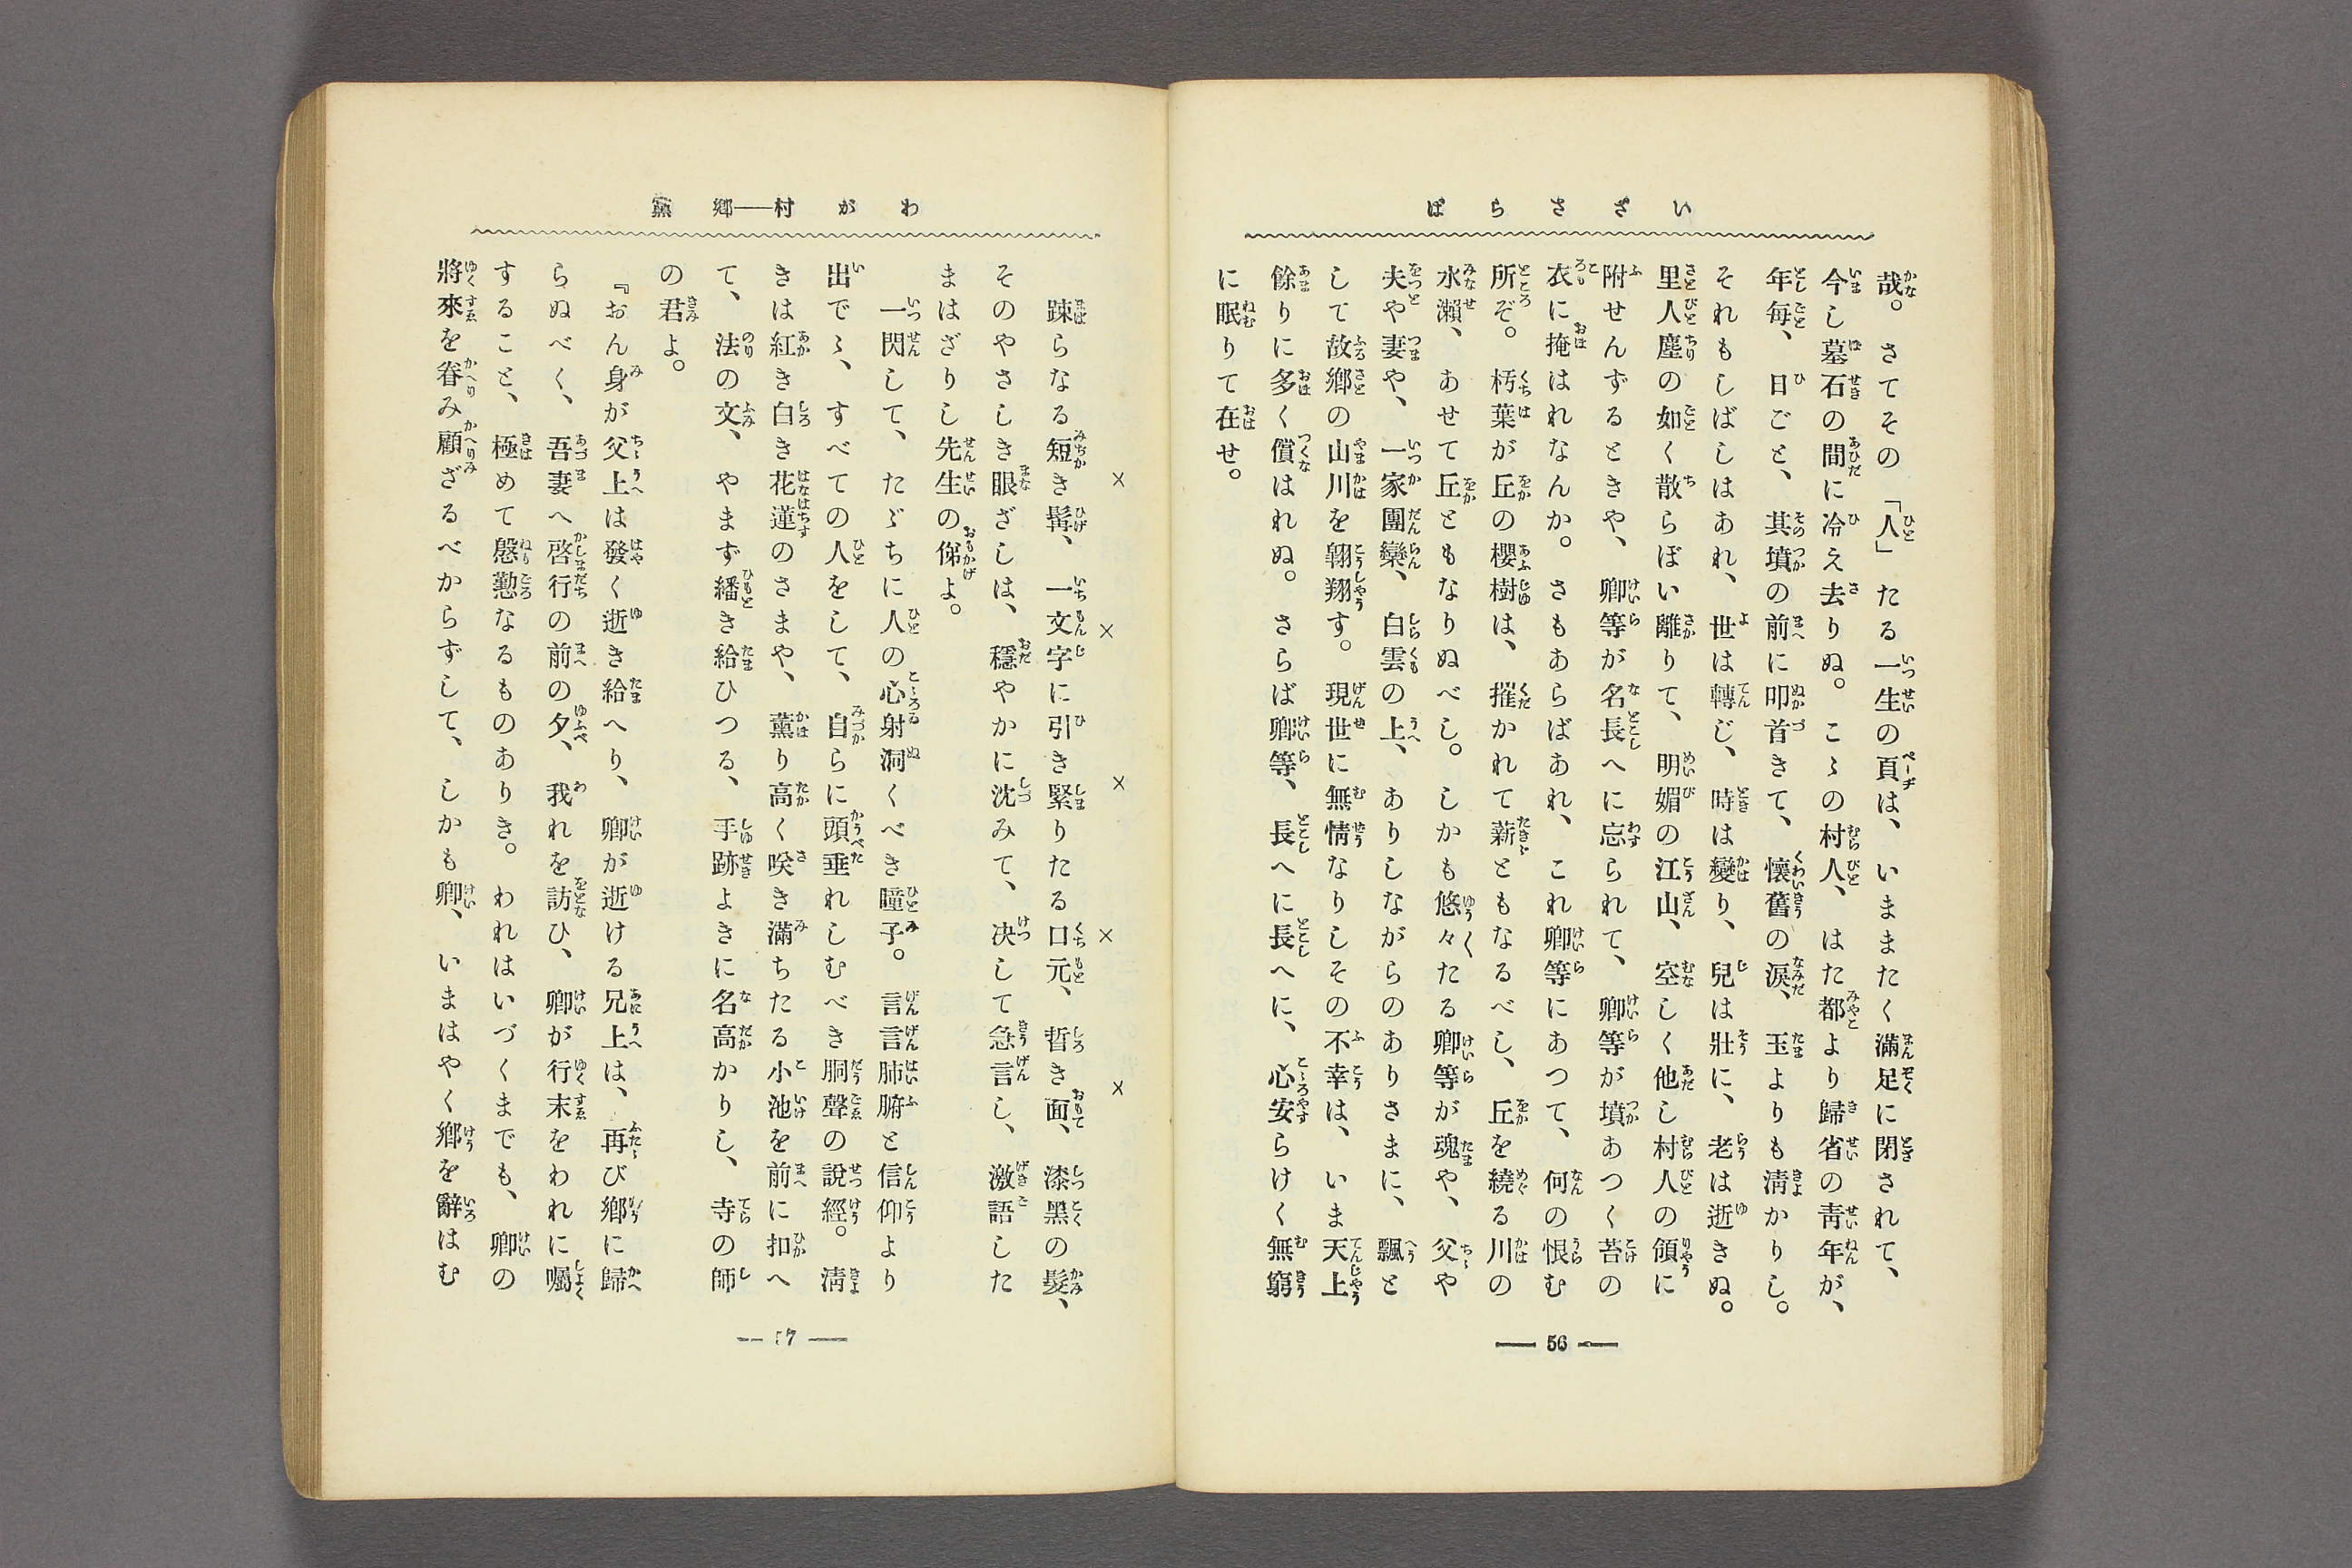 いざさらば
哉。さてその「人」たる一生の頁は、いままたく滿足に閉されて、
今し墓石の間に冷え去りぬ。こゝの村人、はた都より歸省の靑年が、
年每、日ごと、其墳の前に叩首きて、懷舊の淚、玉よりも淸かりし。
それもしばしはあれ、世は轉じ、時は變り、兒は壯に、老は逝きぬ。
里人塵の如く散らぼい離りて、明媚の江山、空しく他し村人の領に
附せんずるときや、卿等が名長へに忘られて、卿等が墳あつく苔の
衣に掩はれなんか。さもあらばあれ、これ卿等にあつて、何の恨む
所ぞ。朽葉が丘の櫻樹は、摧かれて薪ともなるべし、丘を繞る川の
水瀨、あせて丘ともなりぬべし。しかも悠々たる卿等が魂や、父や
夫や妻や、一家團欒、白雲の上、ありしながらのありさまに、飄と
して故鄕の山川を翺翔す。現世に無情なりしその不幸は、いま天上
餘りに多く償はれぬ。さらば卿等、長へに長へに、心安らけく無窮
に眠りて在せ。
56
わが村――鄕黨
×  ×  ×  ×  ×
踈らなる短き髯、一文字に引き緊りたる口元、晳き面、漆黑の髮、
そのやさしき眼ざしは、穩やかに沈みて、决して急言し、激語した
まはざりし先生の俤よ。
一閃して、たゞちに人の心射洞くべき瞳子。言言肺腑と信仰より
出でゝ、すべての人をして、自らに頭垂れしむべき胴聲の說經。淸
きは紅き白き花蓮のさまや、薰り高く咲き滿ちたる小池を前に扣へ
て、法の文、やまず繙き給ひつる、手跡よきに名高かりし、寺の師
の君よ。
『おん身が父上は發く逝き給へり、卿が逝ける兄上は、再び鄕に歸
らぬべく、吾妻へ啓行の前の夕、我れを訪ひ、卿が行末をわれに囑
すること、極めて慇懃なるものありき。われはいづくまでも、卿の
將來を眷み顧ざるべからずして、しかも卿、いまはやく鄕を辭はむ